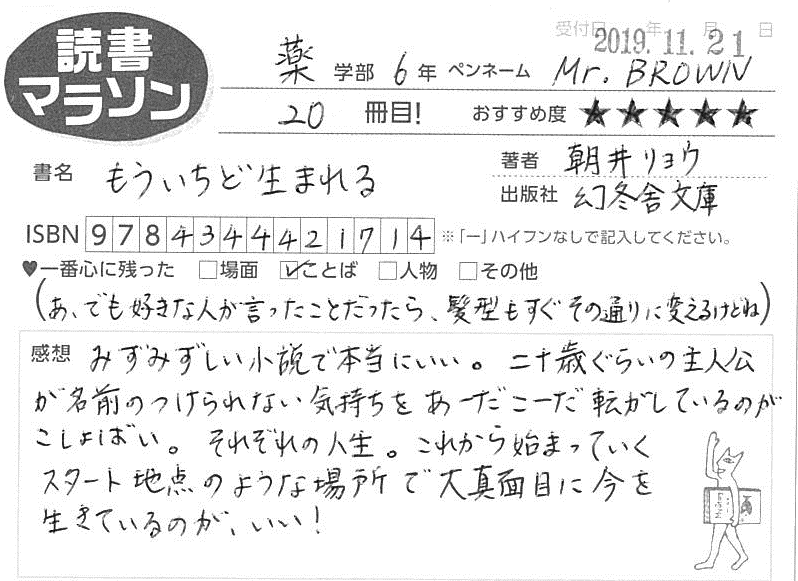 受付日 年 月 日
2019.11.21
読書
マラソン
薬 学部 6年 ペンネーム Mr. BROWN
20 冊目! おすすめ度 ★★★★★
書名 もういちど生まれる
著者 朝井リョウ
出版社 幻冬舎文庫
ISBN 9784344421714 ※「ー」ハイフンなしで記入してください。
♥一番心に残った □場面 ☑ことば □人物 □その他
(あ、でも好きな人が言ったことだったら、髪型もすぐその通りに変えるけどね)
感想 みずみずしい小説で本当にいい。二十歳ぐらいの主人公
が名前のつけられない気持ちをあーだこーだ転がしているのが
こしょばい。それぞれの人生。これから始まっていく
スタート地点のような場所で大真面目に今を
生きているのが、いい!